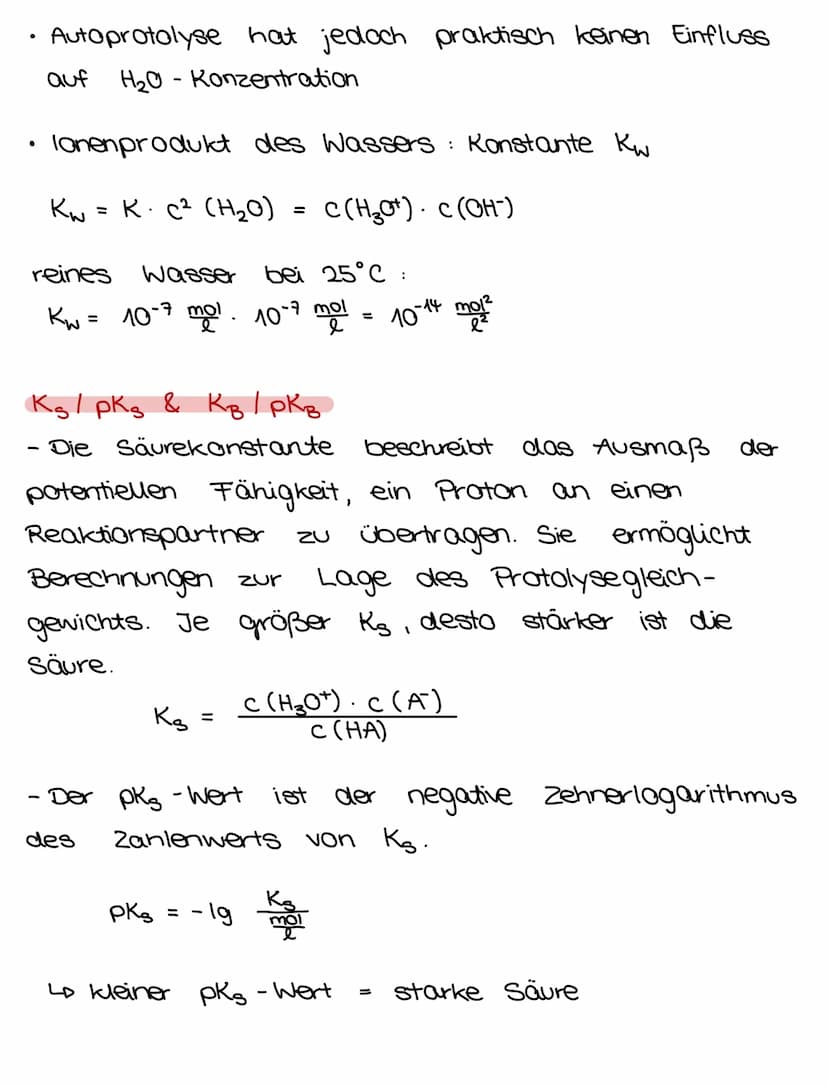 • Autoprotolyse hat jedoch praktisch keinen Einfluss
auf H₂O - Konzentration
• Ionenprodukt des Wassers : Konstante K_W
K_W = K · c² (H₂O) = c(H₃O⁺) · c(OH⁻)
reines Wasser bei 25°C :
K_W = 10⁻⁷ mol/l · 10⁻⁷ mol/l = 10⁻¹⁴ mol²/l²
K_S / pK_S & K_B / pK_B
- Die Säurekonstante beschreibt das Ausmaß der
potentiellen Fähigkeit, ein Proton an einen
Reaktionspartner zu übertragen. Sie ermöglicht
Berechnungen zur Lage des Protolysegleich-
gewichts. Je größer K_S, desto stärker ist die
Säure.
K_S = c(H₃O⁺) · c(A⁻) / c(HA)
- Der pK_S - Wert ist der negative Zehnerlogarithmus
des Zahlenwerts von K_S.
pK_S = - lg K_S / mol/l
↳ kleiner pK_S - Wert = starke Säure